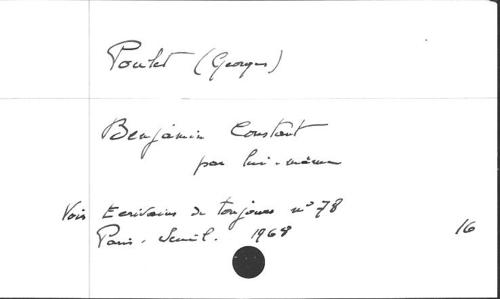 Poulet (Georges)
Benjamin Constant
par lui-même
Vois Ecrivains de toujours n° 78
Paris. Seuil. 1968
16